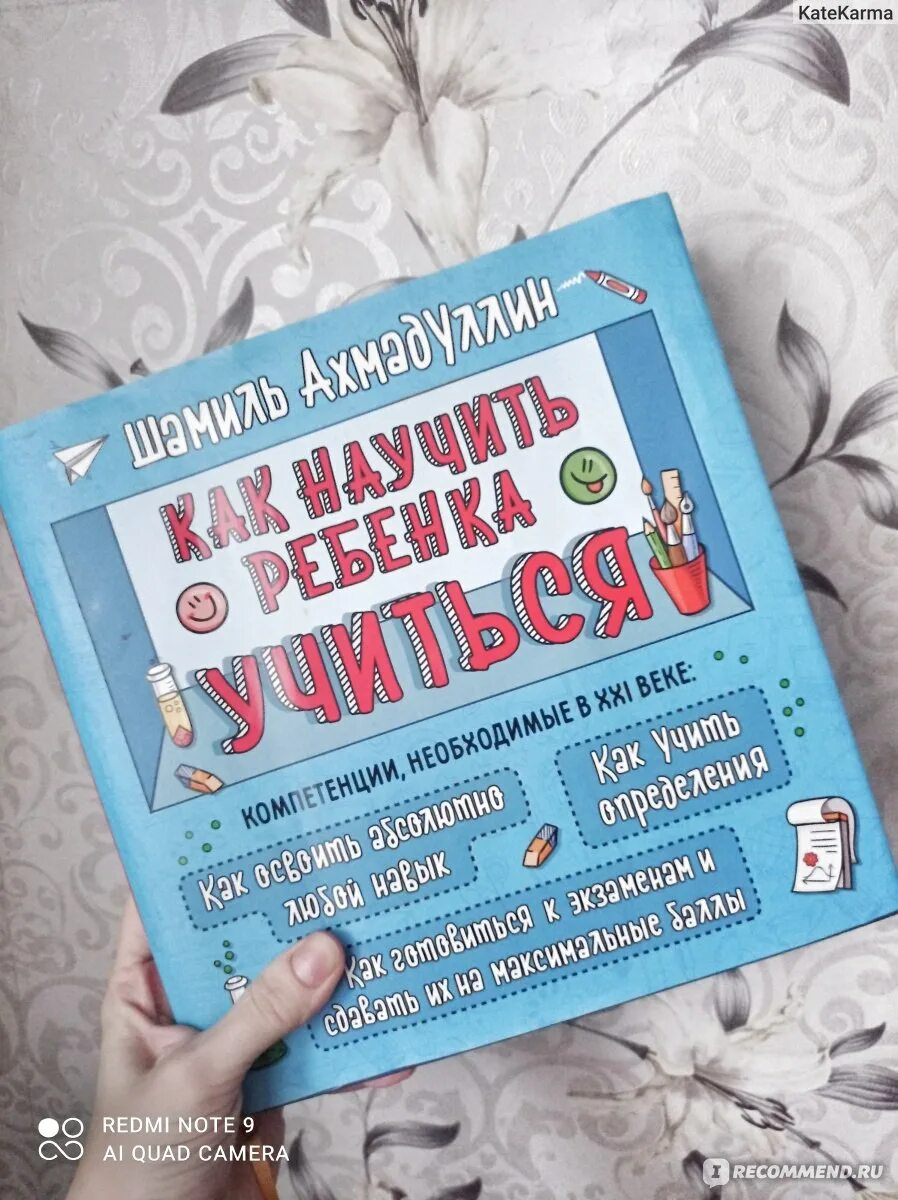 KateKarma
Шамиль Ахмадуллин
Как научить
ребенка
учиться
Компетенции, необходимые в XXI веке:
Как освоить абсолютно
любой навык
Как учить
определения
Как готовиться к экзаменам и
сдавать их на максимальные баллы
REDMI NOTE 9
AI QUAD CAMERA
IRECOMMEND.RU